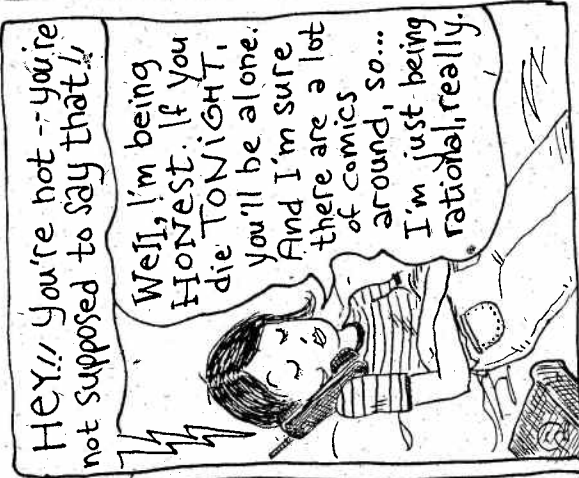 HEY!! You're not -- you're
not supposed to say that!!
Well, I'm being
HONEST. If you
die TONiGHT,
you'll be alone.
And I'm sure
there are a lot
of comics
around, so...
I'm just being
rational, really.